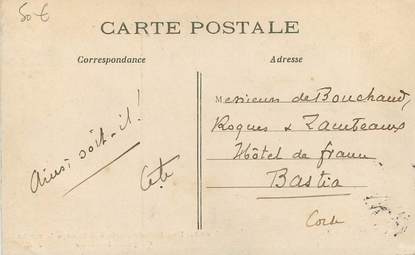 50 €
CARTE POSTALE
Correspondance
Adresse
Ainsi soit-il!
Messieurs de Bouchaud,
Roques &
Hôtel de france
Bastia
Corse